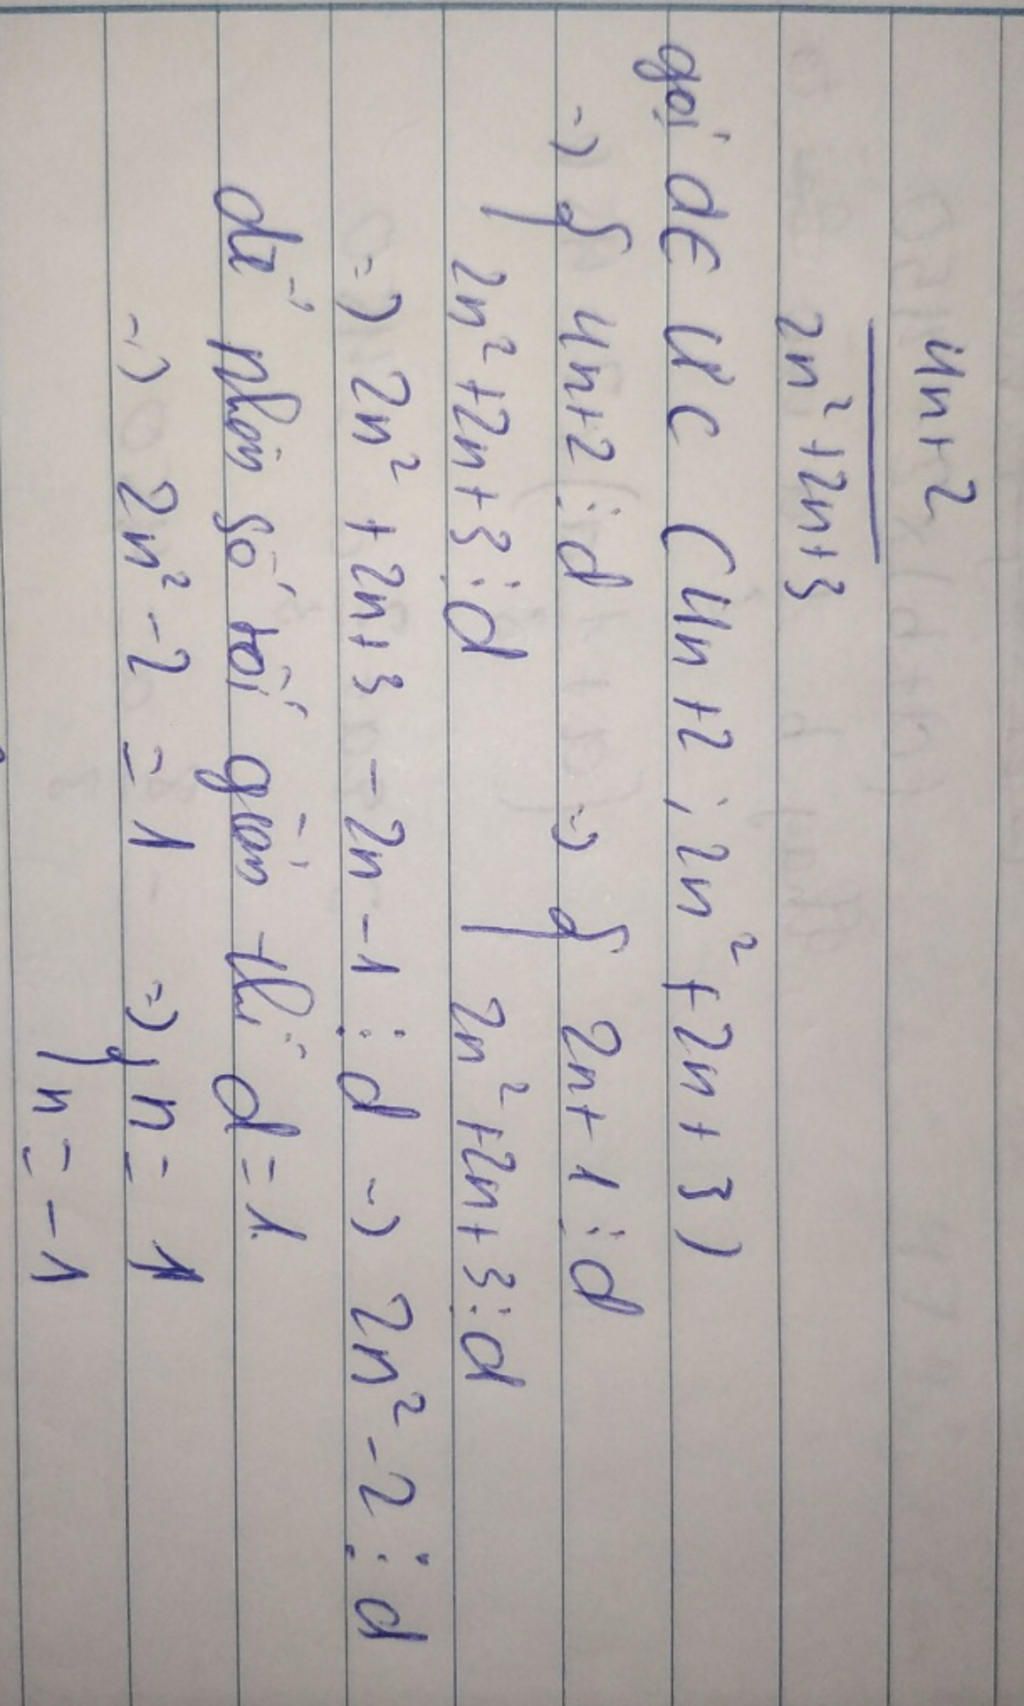 4n+2
2n²+2n+3
gọi d∈ ƯC (4n+2 ; 2n²+2n+3)
=> { 4n+2 ⋮ d => { 2n+1 ⋮ d
2n²+2n+3 ⋮ d 2n²+2n+3 ⋮ d
=> 2n²+2n+3 - 2n - 1 ⋮ d => 2n² - 2 ⋮ d
để phân số tối giản thì d = 1
=> 2n² - 2 = 1 => { n = 1
n = -1